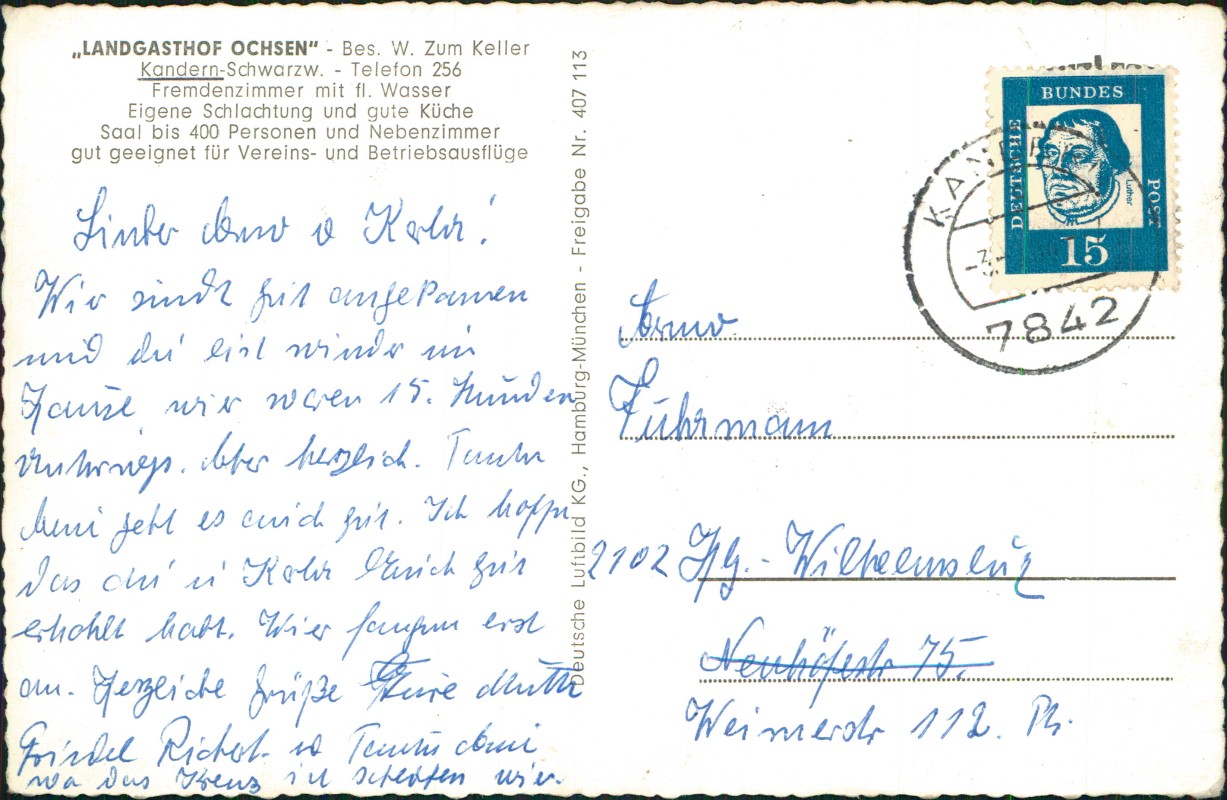 „LANDGASTHOF OCHSEN" - Bes. W. Zum Keller
Kandern-Schwarzw. - Telefon 256
Fremdenzimmer mit fl. Wasser
Eigene Schlachtung und gute Küche
Saal bis 400 Personen und Nebenzimmer
gut geeignet für Vereins- und Betriebsausflüge
Wir sindt gut angekamen
und du wieder im
Hause wir waren 15. Stunden
Unterwegs. Aber herzlich. Tante
geht es auch gut. Ich hoffe
das du u Euch gut
erhohlt habt. Wier fangen erst
an. Herzliche Grüße Eure Mutti
Friedel Richert. u Tante
wo das Kreuz ist schlafen wier.
Deutsche Luftbild KG., Hamburg-München - Freigabe Nr. 407 113
DEUTSCHE
BUNDES
POST
Luther
15
KANDERN
7842
Fuhrmann
2102 Hbg.-Wilhelmsburg
Neuhöferstr 75.
Weimarerstr 112. Pt.